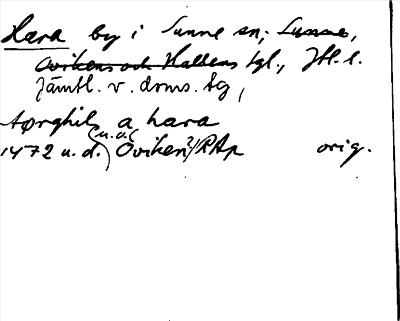 Hara by i Sunne sn; Sunne,
Ovikens och Hallens tgl., Jtl. l.
Jämtl. v. doms. tg,
tørghils a hara
(u.o.(
1472 u.d.) Oviken?/RAp orig.